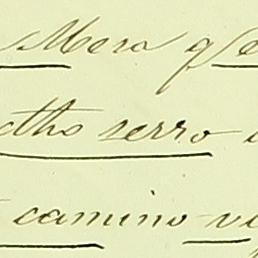 Mesa qe
ctho serro
camino vi